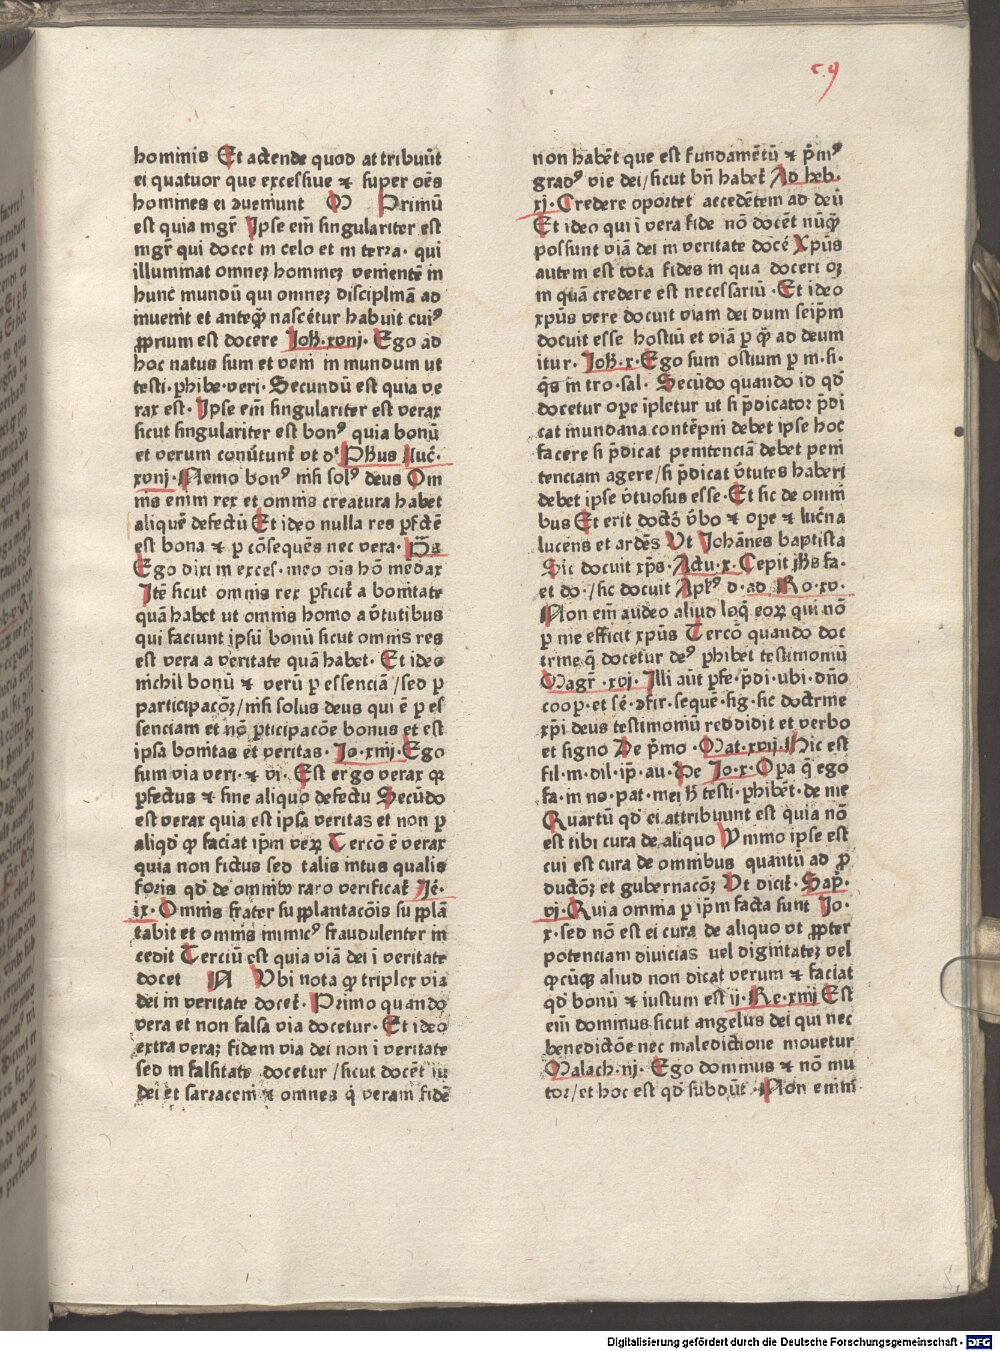 c.9
hominis Et actende quod attribuūt
ei quatuor que excessiue ⁊ super oēs
homines ei ↄueniunt M Primū
est quia mgr̄ Ipse em̄ singulariter est
mgr̄ qui docet in celo et in terra· qui
illuminat omneꝫ homineꝫ venientē in
hunc mundū qui omneꝫ disciplinā ad
inuenit et anteꝙ̄ nascētur habuit cuiꝰ
ꝓprium est docere Joh̄·xvnj· Ego ad
hoc natus sum et veni in mundum ut
testi· phibe·veri· Secundū est quia ve
rax est· Ipse em̄ singulariter est verax
sicut singulariter est bonꝰ quia bonū
et verum conūtunt̄ vt dꝰ Ph̄us Luc̄·
xvnj· Nemo bonꝰ nisi solꝰ deus Om
nis enim rex et omnis creatura habet
aliquē defectū Et ideo nulla res ꝑfctē
est bona ⁊ ꝑ cōsequēs nec vera· p̄s
Ego dixi in exces· meo ois hō mēdax
Itē sicut omnis rex ꝑficit̄ a bonitate
quā habet ut omnis homo a v̄tutibus
qui faciunt ipsū bonū sicut omnis res
est vera a veritate quā habet· Et ideo
nichil bonū ⁊ verū ꝑ essenciā /sed ꝑ
participacōꝫ/ nisi solus deus qui ē ꝑ es
senciam et nō ꝑticipacōe bonus et est
ipsa bonitas et veritas· Jo·xnnj· Ego
sum via veri· ⁊ vi· Est ergo verax qꝛ
ꝑfectus ⁊ sine aliquo defectu Secūdo
est verax quia est ipsa veritas et non ꝑ
aliqd̄ ꝙ faciat ip̄m veꝝ Tercō ē verax
quia non fictus sed talis intus qualis
foris qd̄ de omnibꝰ raro verificat̄ Je·
ix· Omnis frater supplantacōis supplā
tabit et omnis inimicꝰ fraudulenter in
cedit Terciū est quia viā dei ī veritate
docet N Vbi nota ꝙ triplex via
dei in veritate docet̄· Primo quando
vera et non falsa via docetur· Et ideo
extra veraꝫ fidem via dei non ī veritate
sed in falsitate docetur /sicut docēt iu
dei et sarraceni ⁊ omnes q̇ veram fidē
non habēt que est fundamētū ⁊ p̄mꝰ
gradꝰ vie dei/ sicut bn̄ habet̄ Ad heb·
xj· Credere oportet accedētem ad deū
Et ideo qui ī vera fide nō docēt nūꝙ̄
possunt viā dei in veritate docē Xp̄us
autem est tota fides in qua doceri oꝫ
in quā credere est necessariū· Et ideo
xp̄us vere docuit viam dei dum seip̄m
docuit esse hostiū et viā ꝑ q̄ ad deum
itur· Joh̄·x· Ego sum ostium ꝑ m·si·
q̄s in tro·sal· Secūdo quando id qd̄
docetur oꝑe īpletur ut si p̄dicator p̄di
cat mundana contēpni debet ipse hoc
facere si p̄dicat penitenciā debet peni
tenciam agere/ si p̄dicat v̄tutes haberi
debet ipse v̄tuosus esse· Et sic de omni
bus Et erit doctō v̄bo ⁊ oꝑe ⁊ luc̄na
lucens et ardēs Vt Johānes baptista
Sic docuit xp̄s· Actu·x· Cepit ih̄s fa·
et do·/sic docuit Apl̄ꝰ d·ad Ro·xv·
Non em̄ audeo aliud loq̄ eoꝝ qui nō
ꝑ me efficit xp̄us Tercō quando doc
trine q̄ docetur deꝰ ꝑhibet testimoniū
Magr̄·xvj· Illi aūt ꝑfe·p̄di·ubi·dn̄o
coop·et sē·ↄfir·seque·sig·sic doctrine
xp̄i deus testimoniū reddidit et verbo
et signo De p̄mo ·Mat·xvij· Hic est
fil·m·dil·ip̄·au· De Jo·x· Oꝑa q̄ ego
fa·in no·pat·mei h̄ testi·phibēt·de me
Quartū qd̄ ei attribuunt est quia nō
est tibi cura de aliquo Ymmo ipse est
cui est cura de omnibus quantū ad ꝓ
ductōꝫ et gubernacōꝫ Vt dicit̄· Sap̄·
vj· Quia omnia ꝑ ip̄m facta sunt Jo·
x·sed nō est ei cura de aliquo vt ꝓpter
potenciam divicias uel dignitateꝫ vel
ꝙcūqꝫ aliud non dicat verum ⁊ faciat
qd̄ bonū ⁊ iustum est ij·Re·xnij Est
em̄ dominus sicut angelus dei qui nec
benedictōe nec maledictione movetur
Malach·nj· Ego dominus ⁊ nō mu
tor/ et hoc est qd̄ subdūt· Non enim
Digitalisierung gefördert durch die Deutsche Forschungsgemeinschaft - DFG